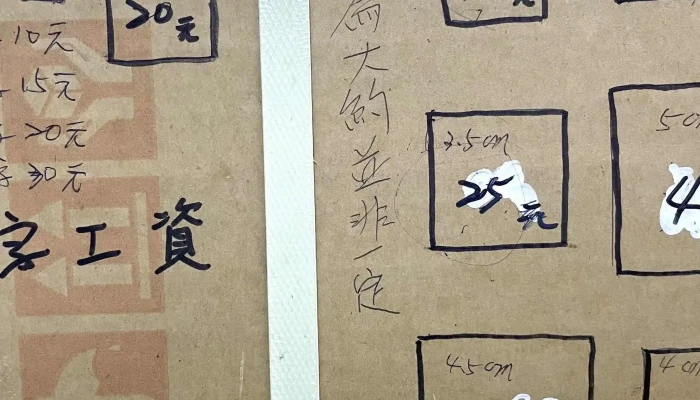 20元
10元
15元
20元
30元
字工資
大的並非一定
元
3.5cm
25元
50
4
4.5cm
4cm